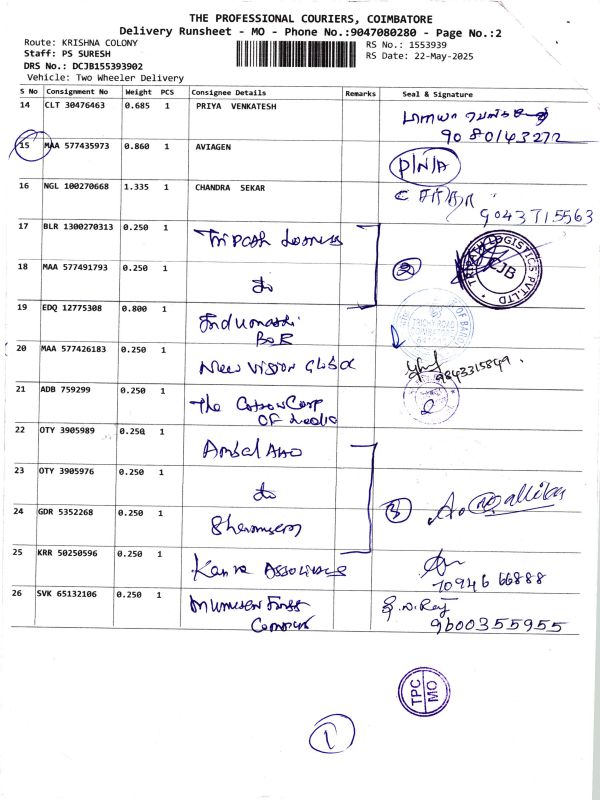 THE PROFESSIONAL COURIERS, COIMBATORE
Delivery Runsheet - MO - Phone No.:9047080280 - Page No.:2
Route: KRISHNA COLONY
RS No.: 1553939
Staff: PS SURESH
RS Date: 22-May-2025
DRS No.: DCJB155393902
Vehicle: Two Wheeler Delivery
S No Consignment No Weight PCS Consignee Details Remarks Seal & Signature
14 CLT 30476463 0.685 1 PRIYA VENKATESH
9080143272
15 MAA 577435973 0.860 1 AVIAGEN
P/N/A
16 NGL 100270668 1.335 1 CHANDRA SEKAR
9043715563
17 BLR 1300270313 0.250 1
TRIPATH LOGISTICS PVT.LTD
CJB
18 MAA 577491793 0.250 1 do 2
19 EDQ 12775308 0.800 1
BOB
20 MAA 577426183 0.250 1 New Vision Global
9843315849.
21 ADB 759299 0.250 1 The Cotton Corp
OF India
22 OTY 3905989 0.250 1 Ambal Auto
23 OTY 3905976 0.250 1 do
24 GDR 5352268 0.250 1 3
25 KRR 50250596 0.250 1 Associates
70946 66888
26 SVK 65132106 0.250 1
9600355955
TPC
MO
1